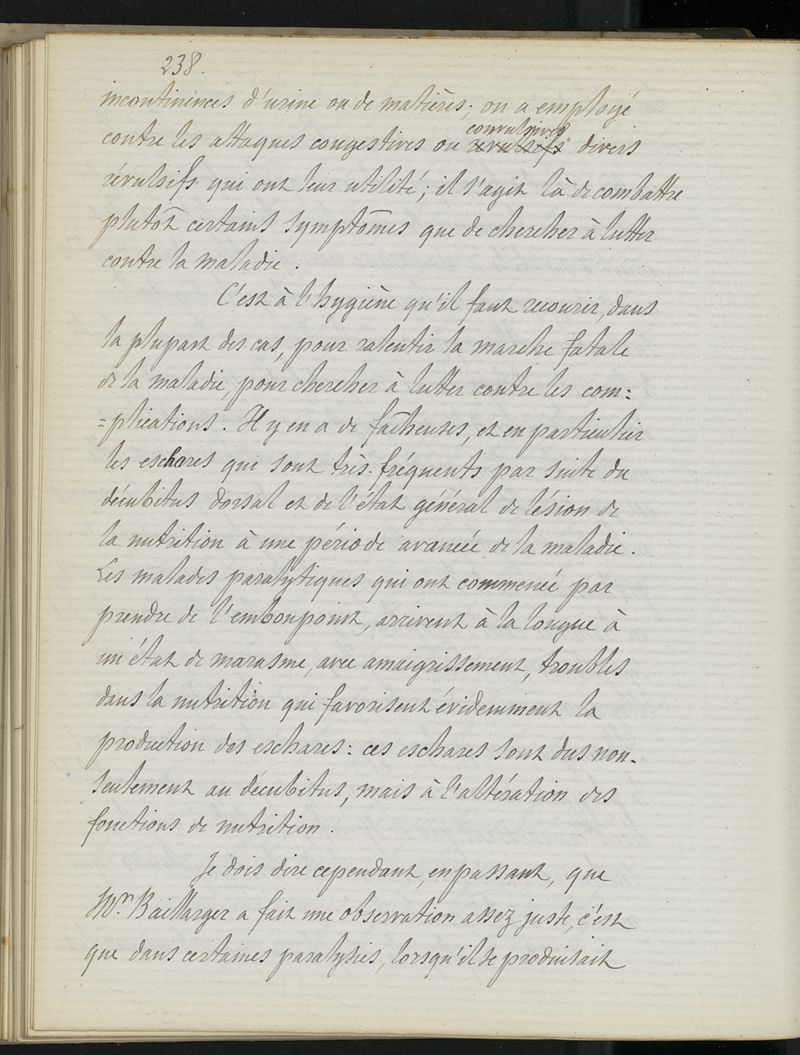 238.
incontinences d'urine ou de matières; on a employé
contre les attaques congestives ou convulsives divers
révulsifs qui ont leur utilité; il s'agit là de combattre
plutôt certains symptômes que de chercher à lutter
contre la maladie.
C'est à l'hygiène qu'il faut recourir, dans
la plupart des cas, pour ralentir la marche fatale
de la maladie, pour chercher à lutter contre les com=
=plications. Il y en a de fâcheuses, et en particulier
les eschares qui sont très-fréquents par suite du
décubitus dorsal et de l'état général de lésion de
la nutrition à une période avancée de la maladie.
Les malades paralytiques qui ont commencé par
prendre de l'embonpoint, arrivent à la longue à
un état de marasme, avec amaigrissement, troubles
dans la nutrition qui favorisent évidemment la
production des eschares: ces eschares sont dus non-
seulement au décubitus, mais à l'altération des
fonctions de nutrition.
Je dois dire cependant, en passant, que
Mr. Baillarger a fait une observation assez juste, c'est
que dans certaines paralysies, lorsqu'il se produisait